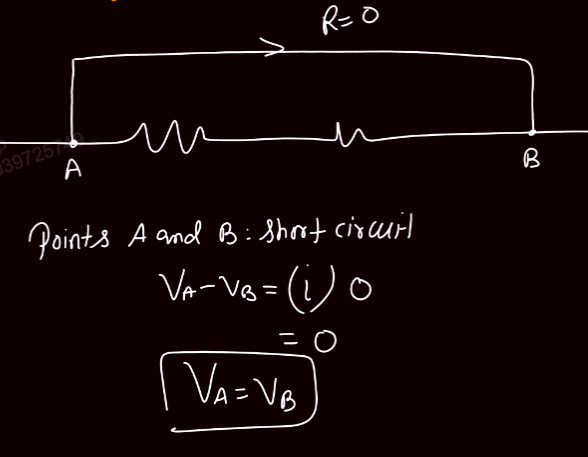 R=0
A
B
Points A and B: Short circuit
VA-VB=(i) 0
=0
VA=VB